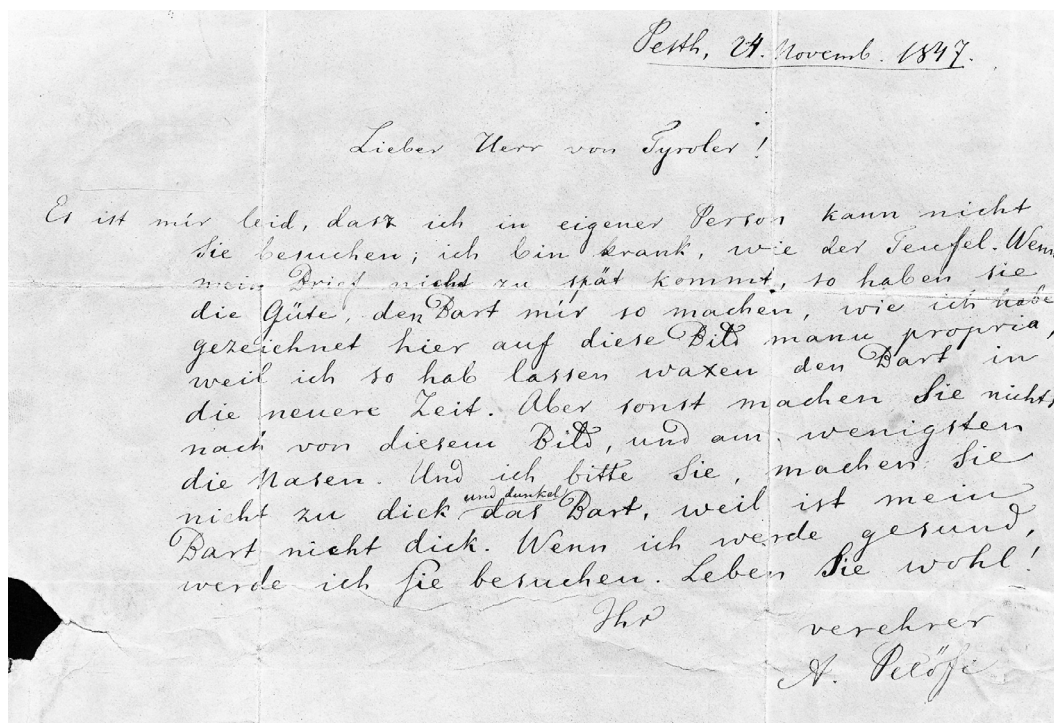 Pesth, 24. Novemb. 1847.
Lieber Herr von Tyroler!
Es ist mir leid, dasz ich in eigener Person kann nicht
Sie besuchen; ich bin krank, wie der Teufel. Wenn
mein Brief nicht zu spät kommt, so haben sie
die Güte, den Bart mir so machen, wie ich habe
gezeichnet hier auf diese Bild manu propria,
weil ich so hab lassen waxen den Bart in
die neuere Zeit. Aber sonst machen Sie nichts
nach von diesem Bild, und am wenigsten
die Nasen. Und ich bitte Sie, machen Sie
nicht zu dick und dunkel das Bart, weil ist mein
Bart nicht dick. Wenn ich werde gesund,
werde ich Sie besuchen. Leben Sie wohl!
Ihr verehrer
A. Petőfi